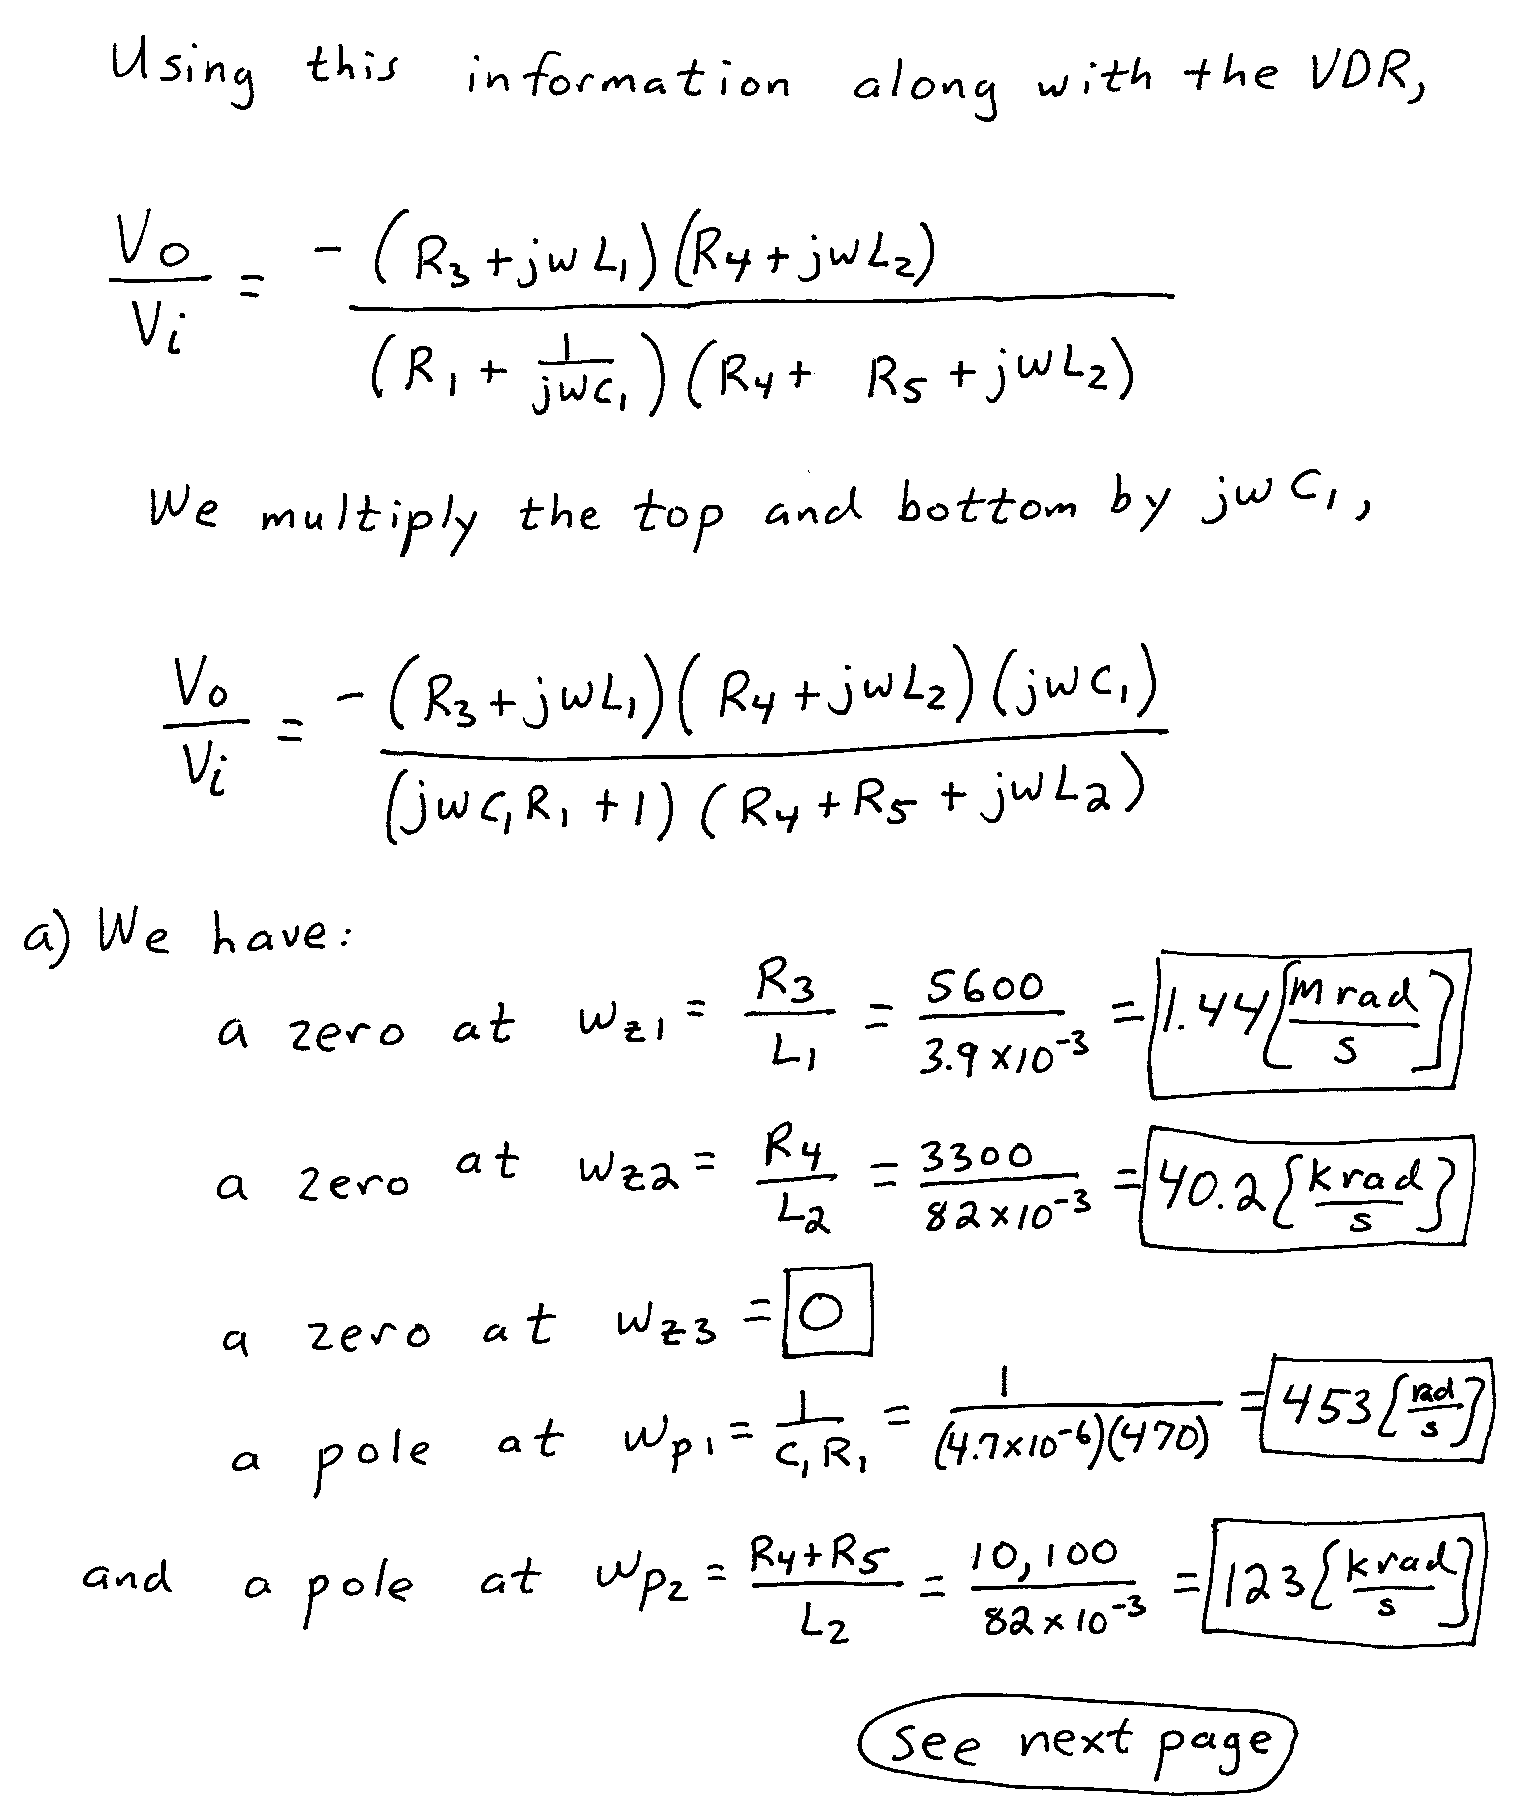 Using this information along with the VDR,
Vo/Vi = -(R3 + jωL1)(R4 + jωL2) / (R1 + 1/jωC1)(R4 + R5 + jωL2)
We multiply the top and bottom by jωC1,
Vo/Vi = -(R3 + jωL1)(R4 + jωL2)(jωC1) / (jωC1R1 + 1)(R4 + R5 + jωL2)
a) We have:
a zero at ωz1 = R3/L1 = 5600/3.9×10^-3 = 1.44 [Mrad/s]
a zero at ωz2 = R4/L2 = 3300/82×10^-3 = 40.2 [krad/s]
a zero at ωz3 = 0
a pole at ωp1 = 1/C1R1 = 1/(4.7×10^-6)(470) = 453 [rad/s]
and a pole at ωp2 = R4+R5/L2 = 10,100/82×10^-3 = 123 [krad/s]
see next page